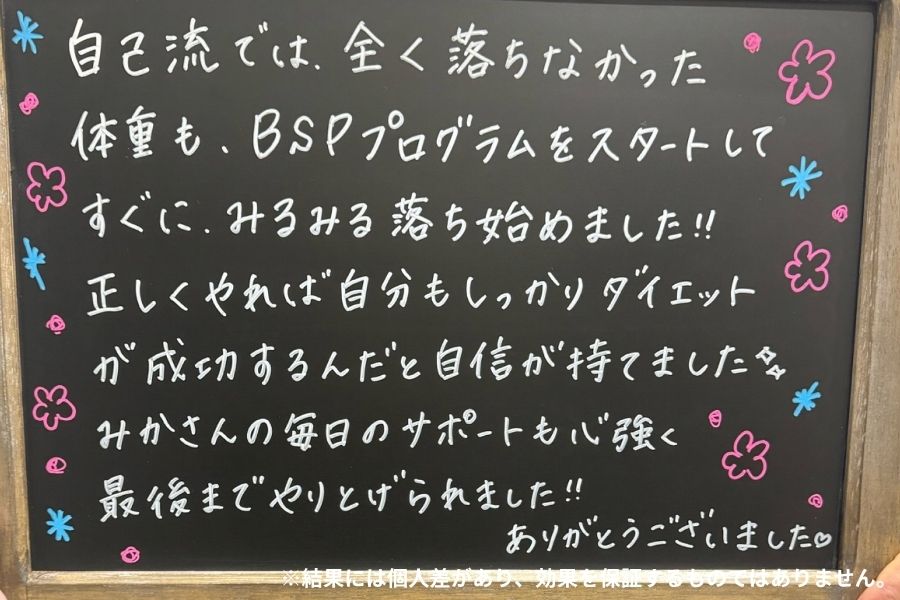 自己流では、全く落ちなかった
体重も、BSPプログラムをスタートして
すぐに、みるみる落ち始めました!!
正しくやれば自分もしっかりダイエット
が成功するんだと自信が持てました
みかさんの毎日のサポートも心強く
最後までやりとげられました!!
ありがとうございました♡
※結果には個人差があり、効果を保証するものではありません。